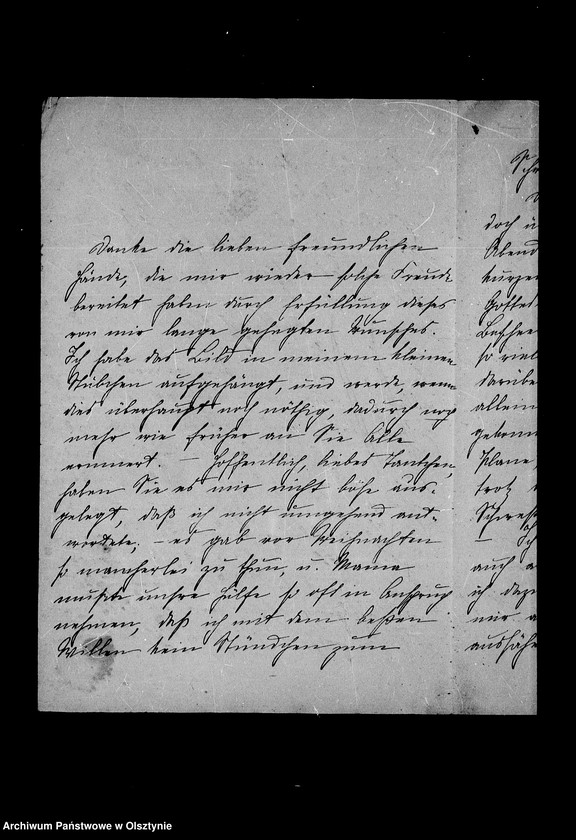 Danke die lieben freundlichen
Hände, die mir wieder solche Freude
bereitet haben durch Erfüllung dieses
von mir lange gehegten Wunsches.
Ich habe das Bild in meinem kleinen
Stübchen aufgehängt, und werde, wenn
dies überhaupt noch nöthig, dadurch noch
mehr wie früher an Sie Alle
erinnert. — Hoffentlich, liebes Tantchen,
haben Sie es mir nicht böse aus-
gelegt, daß ich nicht umgehend ant-
wortete; – es gab vor Weihnachten
so mancherlei zu thun, u. Mama
mußte unsre Hülfe so oft in Anspruch
nehmen, daß ich mit dem besten
Willen kein Stündchen zum
doch
Abend
kurzen
Gottes
so viel
darübe
allein
Pläne,
trotz
Schwest
– Ich
auch a
ich daz
mir a
ausfüh
Archiwum Państwowe w Olsztynie